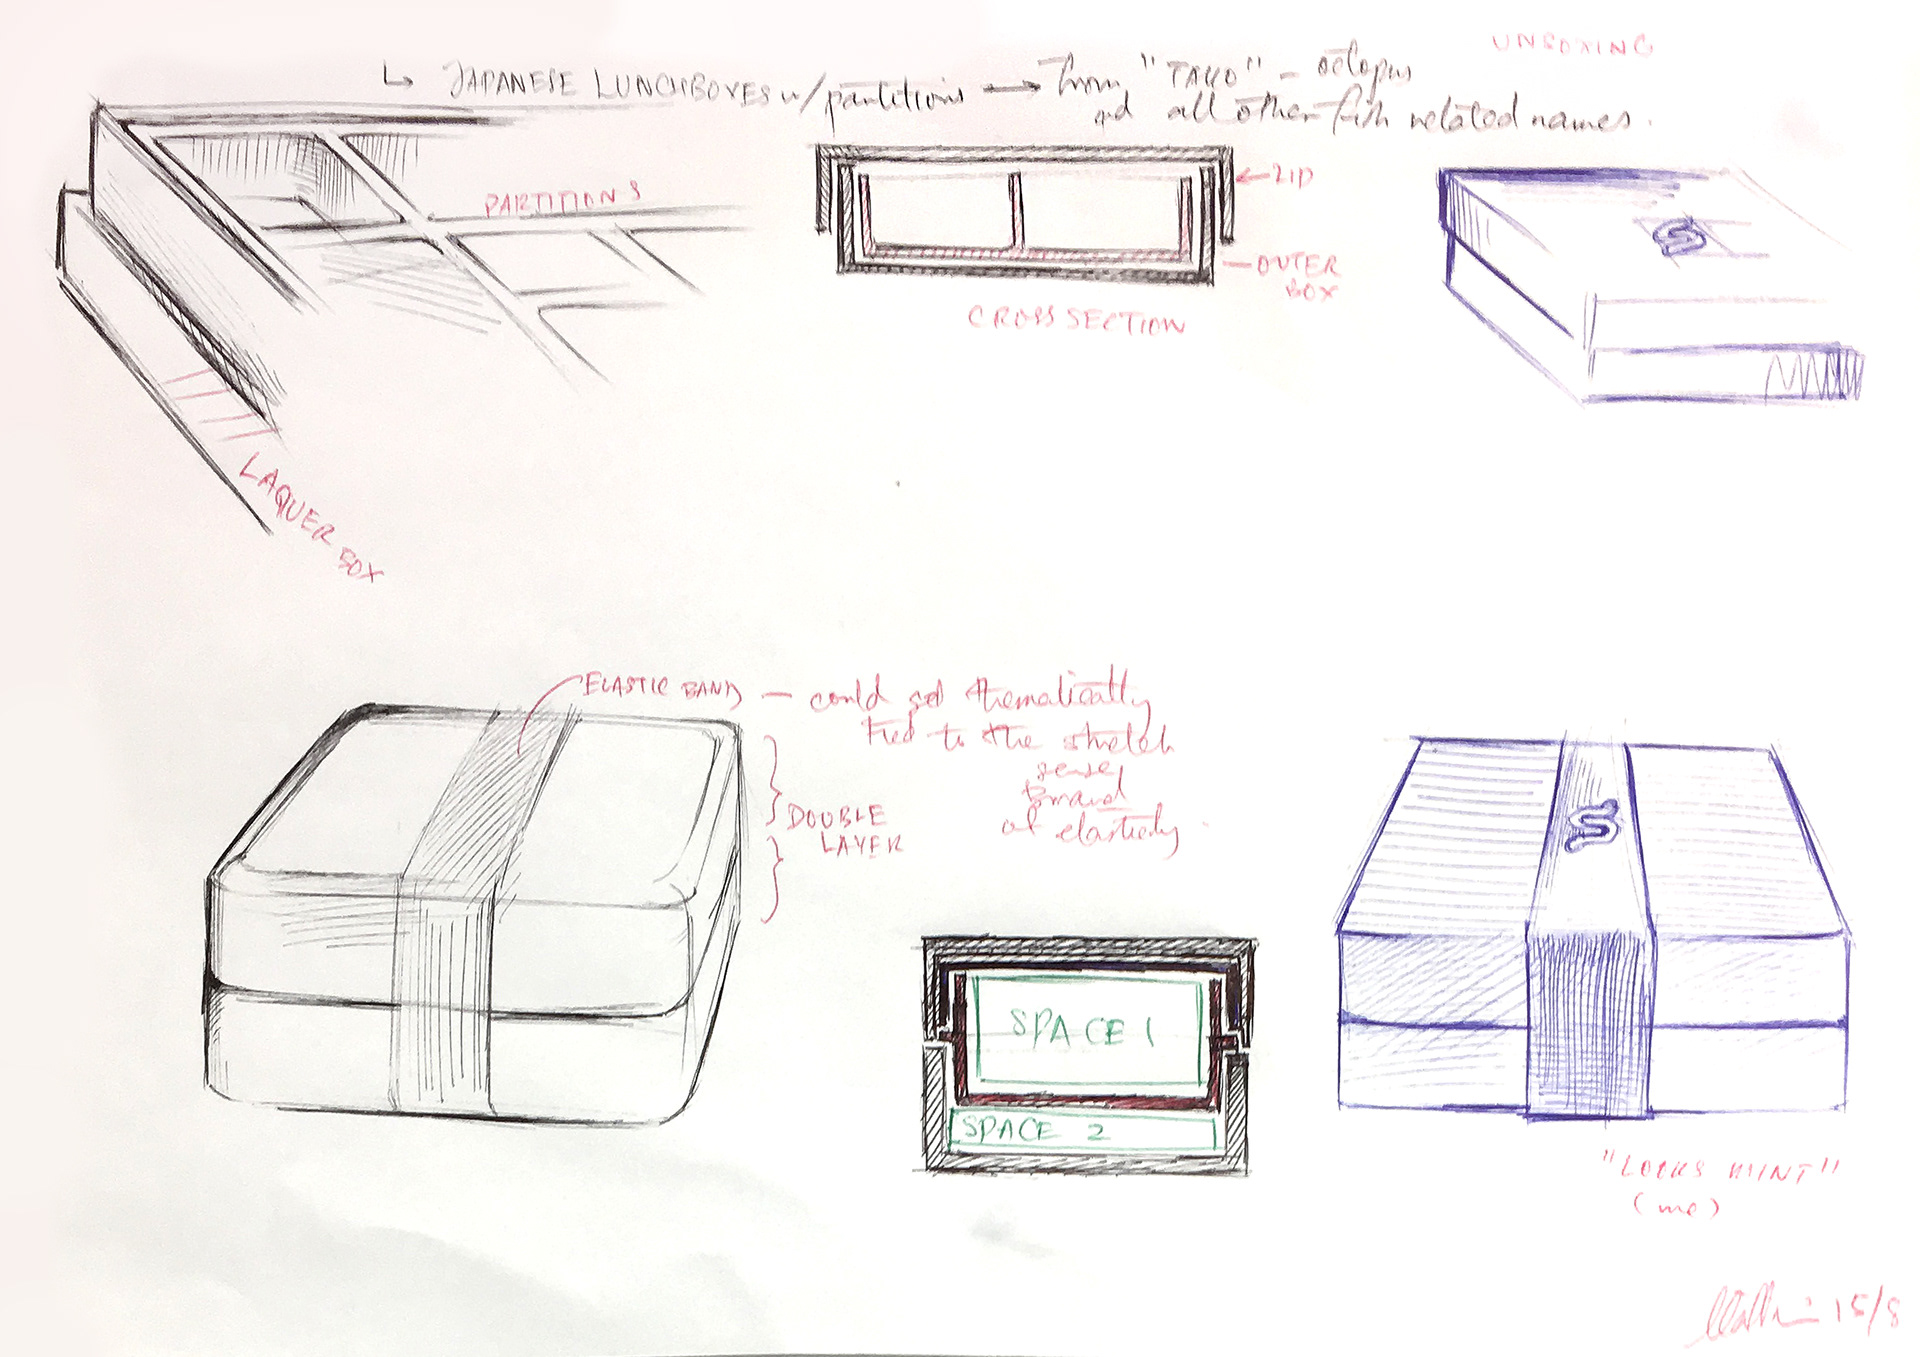 UNBOXING
↳ JAPANESE LUNCHBOXES w/partitions → from "TAKO" - octopus
and all other fish related names.
PARTITIONS
LID
OUTER
BOX
CROSS SECTION
S
LAQUER BOX
ELASTIC BAND — could get thematically
tied to the stretch
sense
brand
of elasticity.
DOUBLE
LAYER
S
SPACE 1
SPACE 2
"LOOKS MINT"
(me)
15/8